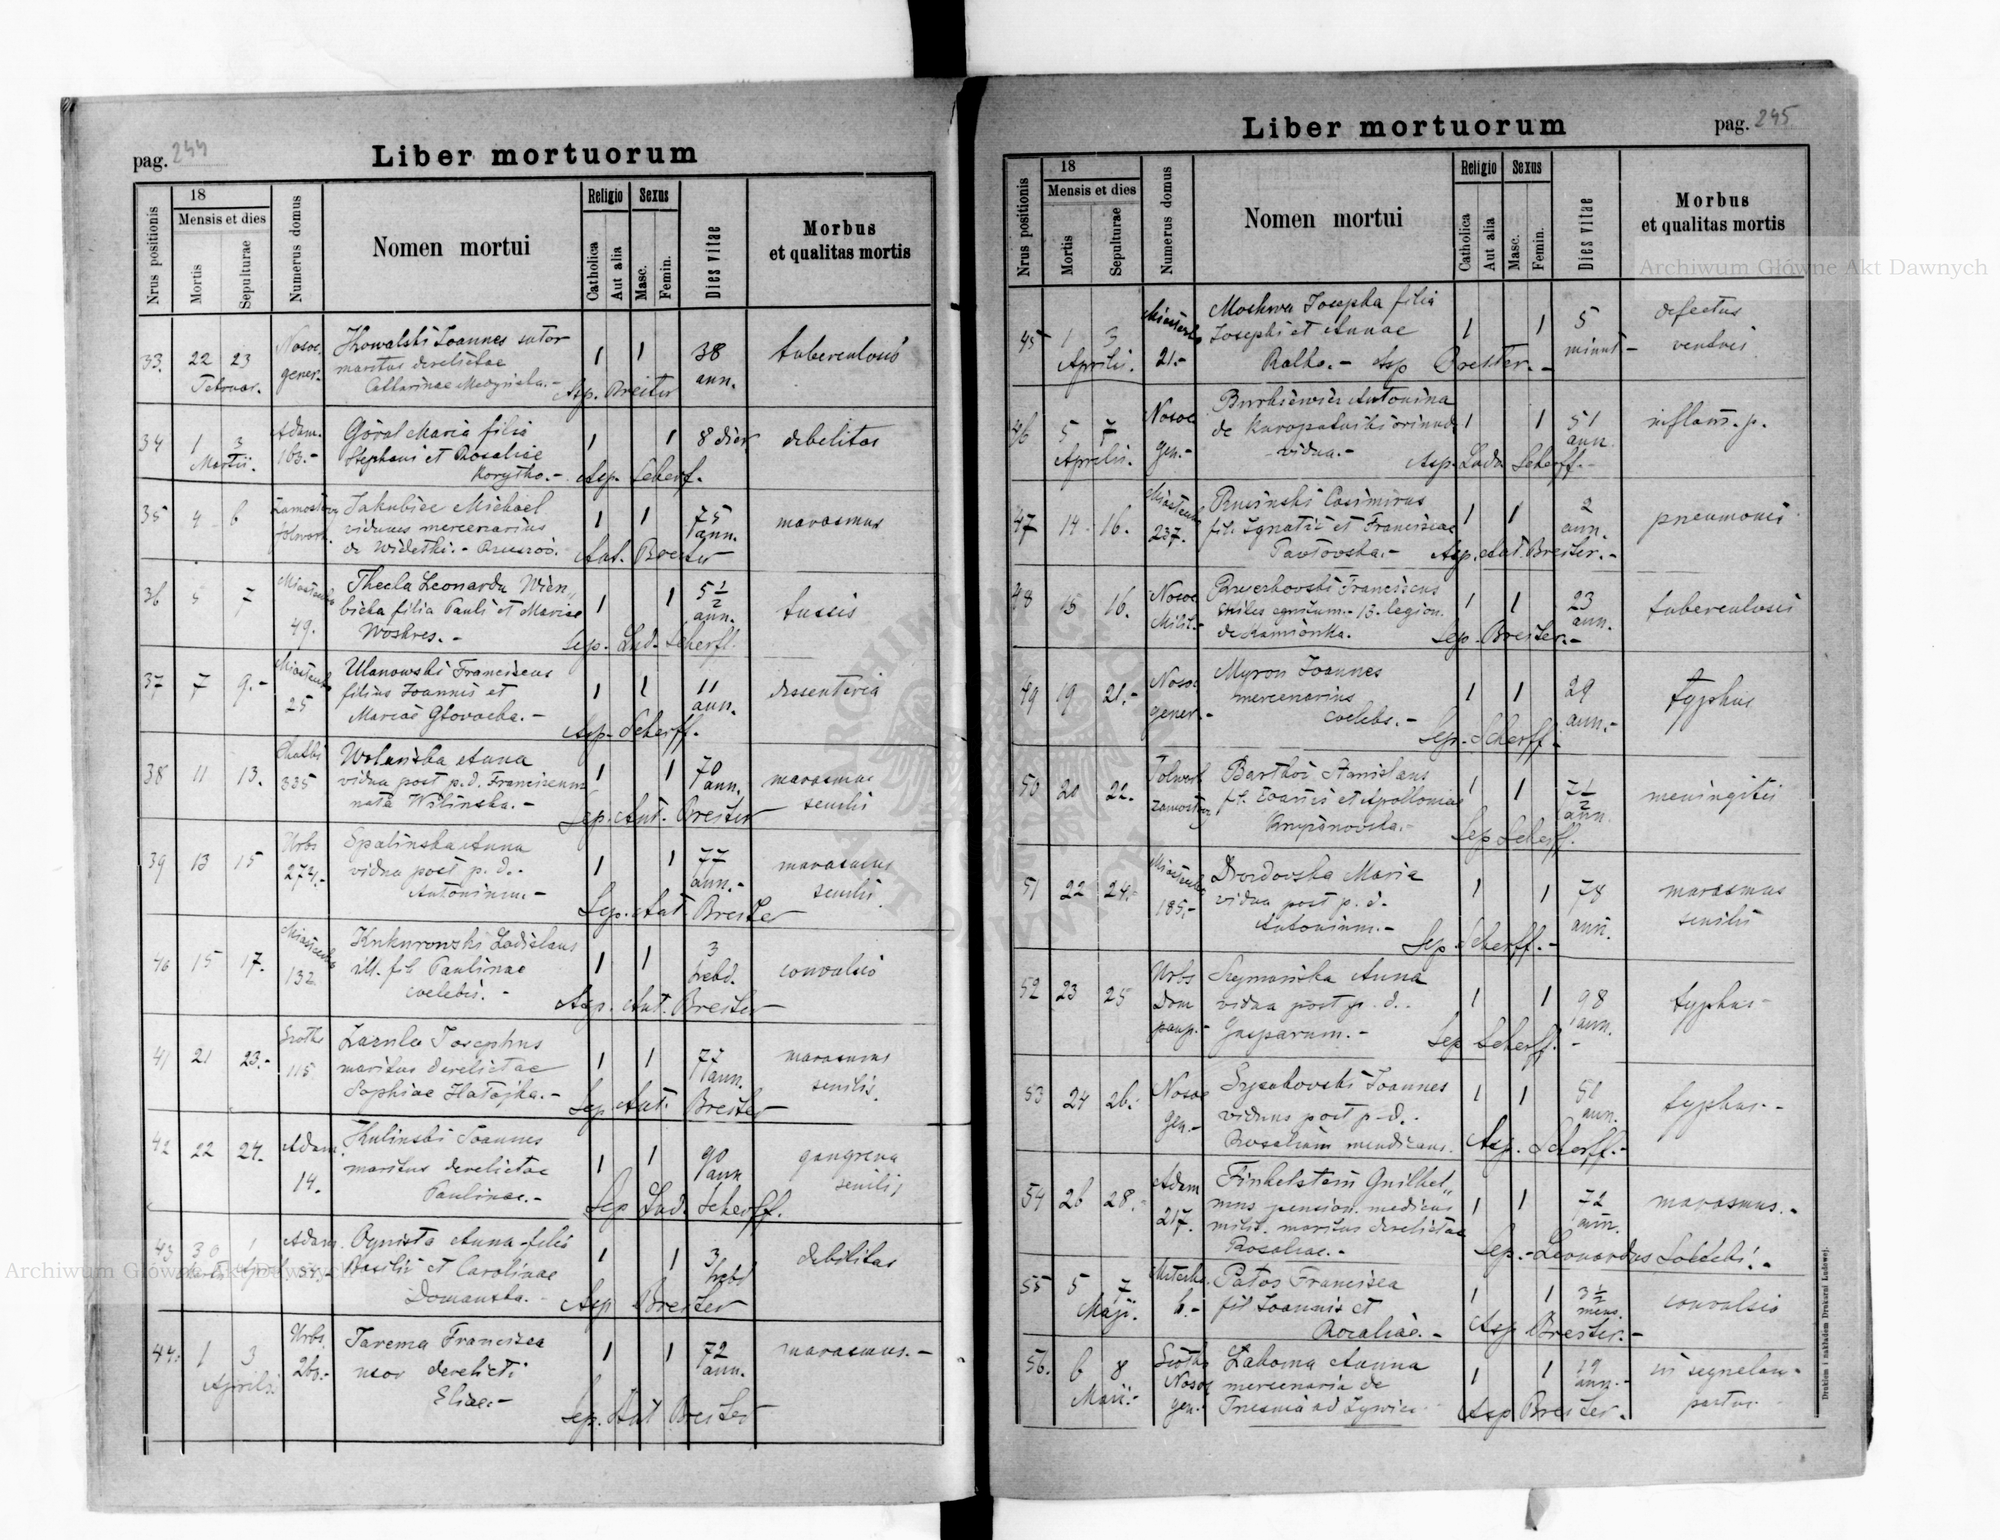 pag. 244
Liber mortuorum
Nrus positionis
18
Mensis et dies
Mortis
Sepulturae
Numerus domus
Nomen mortui
Religio
Catholica
Aut alia
Sexus
Masc.
Femin.
Dies vitae
Morbus
et qualitas mortis
33. 22 23 Februar. Nosoc. gener.
Kowalski Joannes sutor
maritus derelictae
Catharinae
1 1 38 ann. tuberculosis
Sep. Breiter
34 1 3 Martii. Adam. 163.-
Góral Maria filia
Stephani et Rosaliae
Korytko.-
1 1 8 dier debilitas
Asp. Scherf.
35 4 6
Jakubiec Michael
viduus mercenarius
de Widełki.-
1 1 75 ann. marasmus
Ant. Breiter
36 5 7 49.
Thecla Leonarda Wien„
bicka filia Pauli et Mariae
Woskres.-
1 1 5 1/2 ann. tussis
Sep. Lud. Scherff.
37 7 9.- Miasteczko 25
Ulanowski Franciscus
filius Joannis et
Mariae Głowacka.-
1 1 11 ann. dissenteria
Asp. Scherff.
38 11 13. 335
Wolańska Anna
vidua post p.d. Franciscum
nata Wilinska.-
1 1 70 ann. marasmus
senilis
Sep. Ant. Breiter
39 13 15 Urbs 274.-
Spalinska Anna
vidua post p. d.
Antoninum.-
1 1 77 ann.- marasmus
senilis
Sep. Ant. Breiter
40 15 17. Miasteczko 132
Kukurowski Ladislaus
ill. fil Paulinae
coelebis.-
1 1 3 hebd. convulsio
Asp. Ant. Breiter
41 21 23.- 115
Lazula Josephus
maritus derelictae
Sophiae Hałajka.-
1 1 72 ann. marasmus
senilis.
Sep. Ant. Breiter
42 22 24. Adam. 14.
Kulinski Joannes
maritus derelictae
Paulinae.-
1 1 90 ann gangrena
senilis
Sep Lud. Scherff.
43 30 1
Ognista Anna filia
Basilii et Carolinae
Domanska.
1 1 3 hebd debilitas
Asp Breiter
44. 1 3 Aprilis. Urbs. 263.-
Jarema Francisca
uxor derelicti
Eliae.-
1 1 72 ann. marasmus.-
Sep. Ant Breiter
pag. 245
Liber mortuorum
Nrus positionis
18
Mensis et dies
Mortis
Sepulturae
Numerus domus
Nomen mortui
Religio
Catholica
Aut alia
Sexus
Masc.
Femin.
Dies vitae
Morbus
et qualitas mortis
45 1 3 Aprilis. 21.-
Moskwa Josepha filia
Josephi et Annae
Ralko.-
1 1 5 minut- defectus
ventris
Asp Breiter.-
46 5 7 Aprilis. Nosoc gen.-
Burkiewicz Antonina
de Kuropatniki oriunda
vidua.-
1 1 51 ann. inflam. p.
Asp. Lud. Scherff.-
47 14 16. Miasteczko 237.
Rusinski Casimirus
fil. Ignatii et Franciscae
Pawłowska.-
1 1 2 ann. pneumonis
Asp. Ant. Breiter.-
48 15 16. Nosoc Milit.-
Franciscus
Miles legion.
de Kamionka.
1 1 23 ann. tuberculosis
Sep. Breiter.-
49 19 21.- Nosoc gener.-
Myron Joannes
mercenarius
coelebs.-
1 1 29 ann.- typhus
Sep. Scherff.
50 20 22. Folwark
Bartkoś Stanislaus
fil. Joannis et Apolloniae
1 1 7 1/2 ann. meningitis
Sep Scherff.
51 22 24.- Miasteczko 185.-
Maria
vidua post p. d.
Antonium.-
1 1 78 ann. marasmus
senilis
Sep. Scherff.-
52 23 25 Urbs Dom paup.-
Szymańska Anna
vidua post p. d.
Gasparum.-
1 1 98 ann. typhus-
Sep Scherff.-
53 24 26. Nosoc gen.-
Joannes
viduus post p.d.
Rosaliam mendicans.
1 1 ann. typhus.-
Asp. Scherff.-
54 26 28. Adam 217.
Finkelstein Guilhel„
mus pension. medicus
milit. maritus derelictae
Rosaliae.-
1 1 72 ann. marasmus.-
Sep.- Leonardus Solecki.-
55 5 7 Maji. 6.-
Patos Francisca
fil Joannis et
Rosaliae.-
1 1 3 1/2 mens. convulsio
Asp Breiter.-
56. 6 8 Maii.- Nosoc gen.-
Łakoma Anna
mercenaria de
1 1 ann.-
partus.
Asp Breiter.-
Drukiem i nakładem Drukarni Ludowej.
Archiwum Główne Akt Dawnych
Archiwum Główne Akt Dawnych